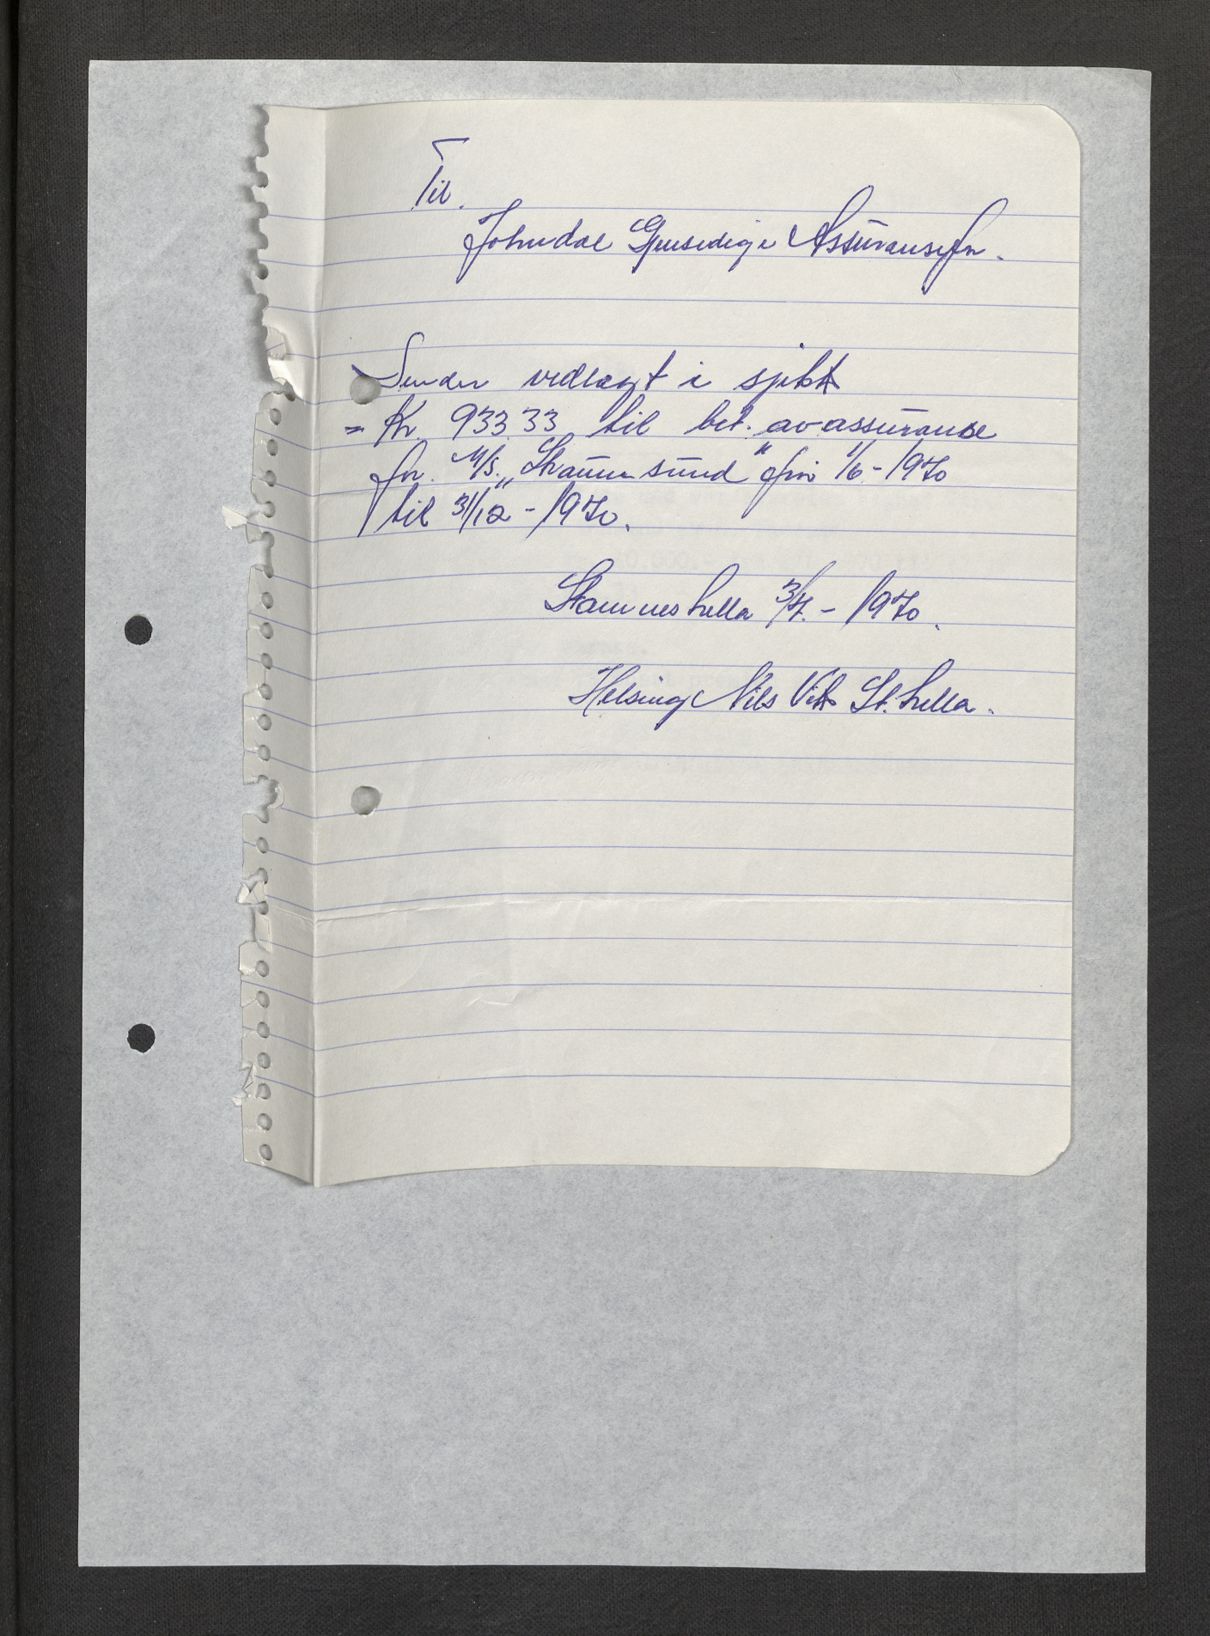 Til.
Johndal Gjensidige Assuransefor.
Sender vedlagt i sjekk
= Kr. 933 33 til bet. av assuranse
for M/S. „Straumsund" frå 1/6 - 1970
til 31/12 - 1970.
Stamneshella 3/7. - 1970.
Helsing Nils Vik St. hella.